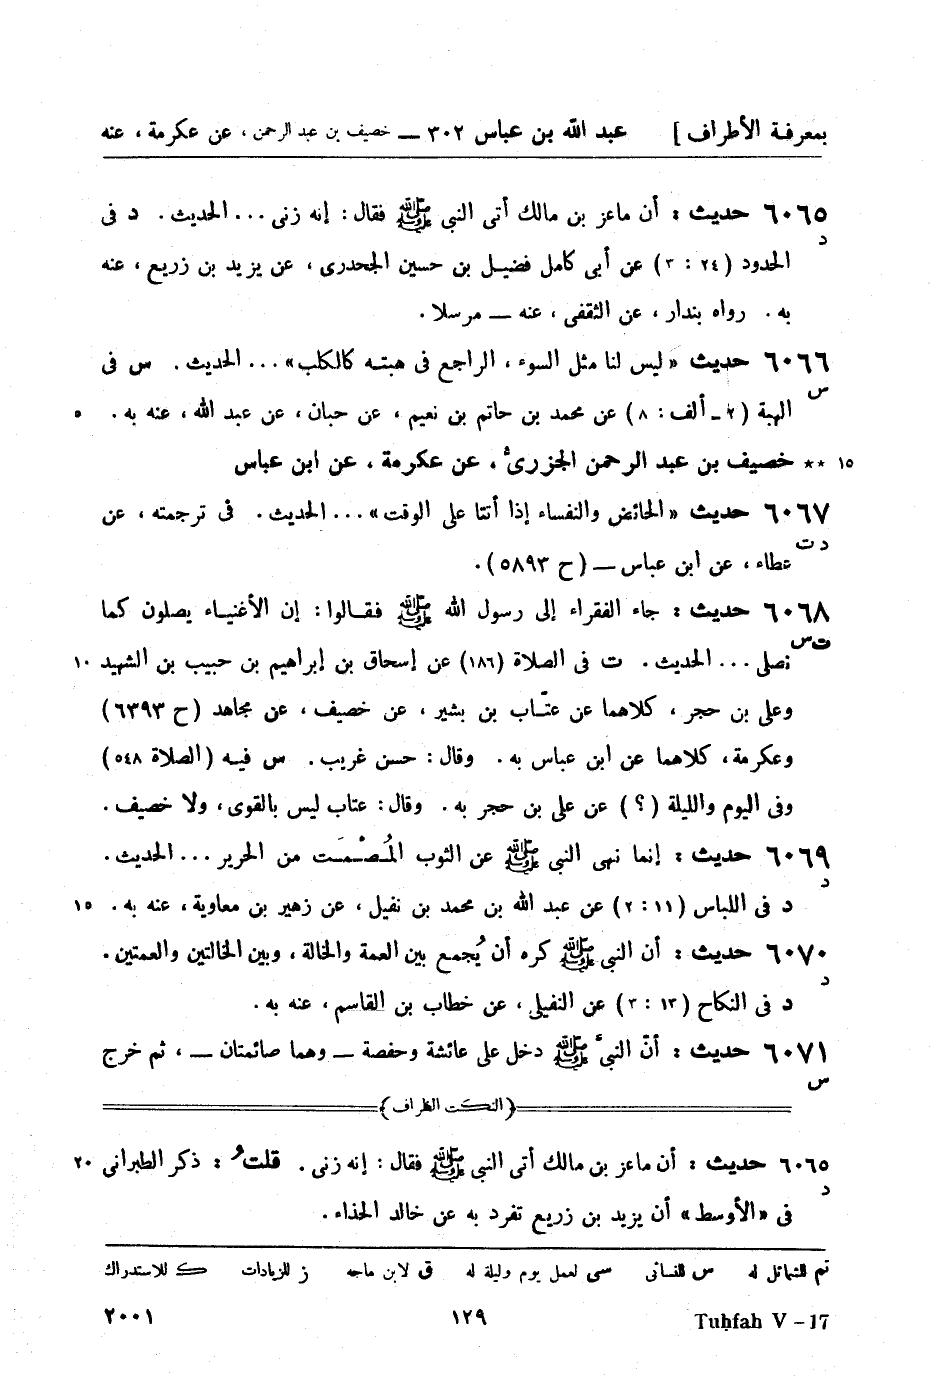 بمعرفة الأطراف] عبد الله بن عباس ٣٠٢ ــ خصيف بن عبد الرحمن ، عن عكرمة ، عنه
٦٠٦٥ حديث : أن ماعز بن مالك أتى النبى ﷺ فقال : إنه زنى ... الحديث . د فى
د
الحدود (٢٤ : ٣) عن أبى كامل فضيل بن حسين الجحدرى ، عن يزيد بن زريع ، عنه
به . رواه بندار ، عن الثقفى ، عنه ــ مرسلا .
٦٠٦٦ حديث «ليس لنا مثل السوء ، الراجع فى هبته كالكلب» ... الحديث . س فى
س
الهبة (٢ ـ ألف : ٨) عن محمد بن حاتم بن نعيم ، عن حبان ، عن عبد الله ، عنه به . ٥
١٥ ** خصيف بن عبد الرحمن الجزرىُّ ، عن عكرمة ، عن ابن عباس
٦٠٦٧ حديث «الحائض والنفساء إذا أتتا على الوقت» ... الحديث . فى ترجمته ، عن
د ت
عطاء ، عن ابن عباس ــ (ح ٥٨٩٣) .
٦٠٦٨ حديث : جاء الفقراء إلى رسول الله ﷺ فقالوا : إن الأغنياء يصلون كما
ت س
نصلى ... الحديث . ت فى الصلاة (١٨٦) عن إسحاق بن إبراهيم بن حبيب بن الشهيد ١٠
وعلى بن حجر ، كلاهما عن عتّاب بن بشير ، عن خصيف ، عن مجاهد (ح ٦٣٩٣)
وعكرمة ، كلاهما عن ابن عباس به . وقال : حسن غريب . س فيه (الصلاة ٥٤٨)
وفى اليوم والليلة (؟) عن على بن حجر به . وقال : عتاب ليس بالقوى ، ولا خصيف .
٦٠٦٩ حديث : إنما نهى النبى ﷺ عن الثوب المُصْمَت من الحرير ... الحديث .
د
د فى اللباس (١١ : ٢) عن عبد الله بن محمد بن نفيل ، عن زهير بن معاوية ، عنه به . ١٥
٦٠٧٠ حديث : أن النبى ﷺ كره أن يُجمع بين العمة والخالة ، وبين الخالتين والعمتين .
د
د فى النكاح (١٣ : ٣) عن النفيلى ، عن خطاب بن القاسم ، عنه به .
٦٠٧١ حديث : أنّ النبىَّ ﷺ دخل على عائشة وحفصة ــ وهما صائمتان ــ ، ثم خرج
س
(النكت الظراف)
٦٠٦٥ حديث : أن ماعز بن مالك أتى النبى ﷺ فقال : إنه زنى . قلتُ : ذكر الطبرانى ٢٠
د
فى «الأوسط» أن يزيد بن زريع تفرد به عن خالد الحذاء .
تم للشمائل له س للنسائى سى لعمل يوم وليلة له ق لابن ماجه ز للزيادات ك للاستدراك
٢٠٠١ ١٢٩ Tuḥfah V – 17